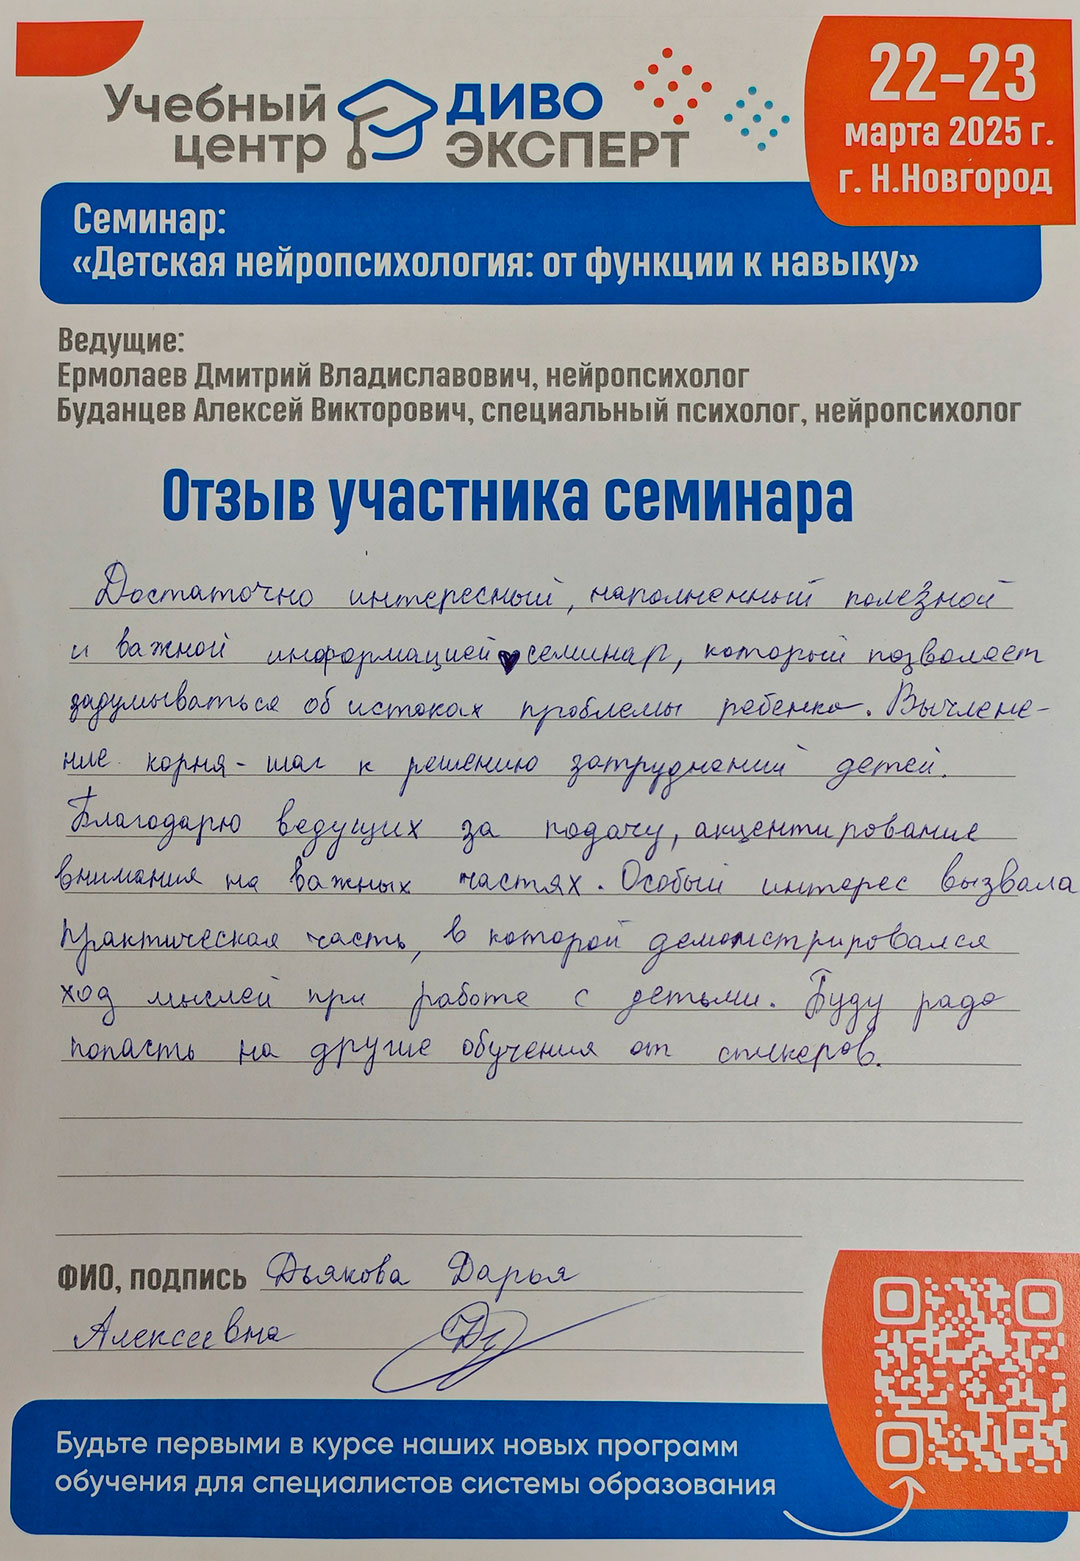 Учебный
центр
ДИВО
ЭКСПЕРТ
22-23
марта 2025 г.
г. Н.Новгород
Семинар:
«Детская нейропсихология: от функции к навыку»
Ведущие:
Ермолаев Дмитрий Владиславович, нейропсихолог
Буданцев Алексей Викторович, специальный психолог, нейропсихолог
Отзыв участника семинара
Достаточно интересный, наполненный полезной
и важной информацией семинар, который позволяет
задумываться об истоках проблемы ребенка. Вычлене-
ние корня - шаг к решению затруднений детей.
Благодарю ведущих за подачу, акцентирование
внимания на важных частях. Особый интерес вызвала
практическая часть, в которой демонстрировался
ход мыслей при работе с детьми. Буду рада
попасть на другие обучения от спикеров.
ФИО, подпись Дьякова Дарья
Алексеевна
Будьте первыми в курсе наших новых программ
обучения для специалистов системы образования